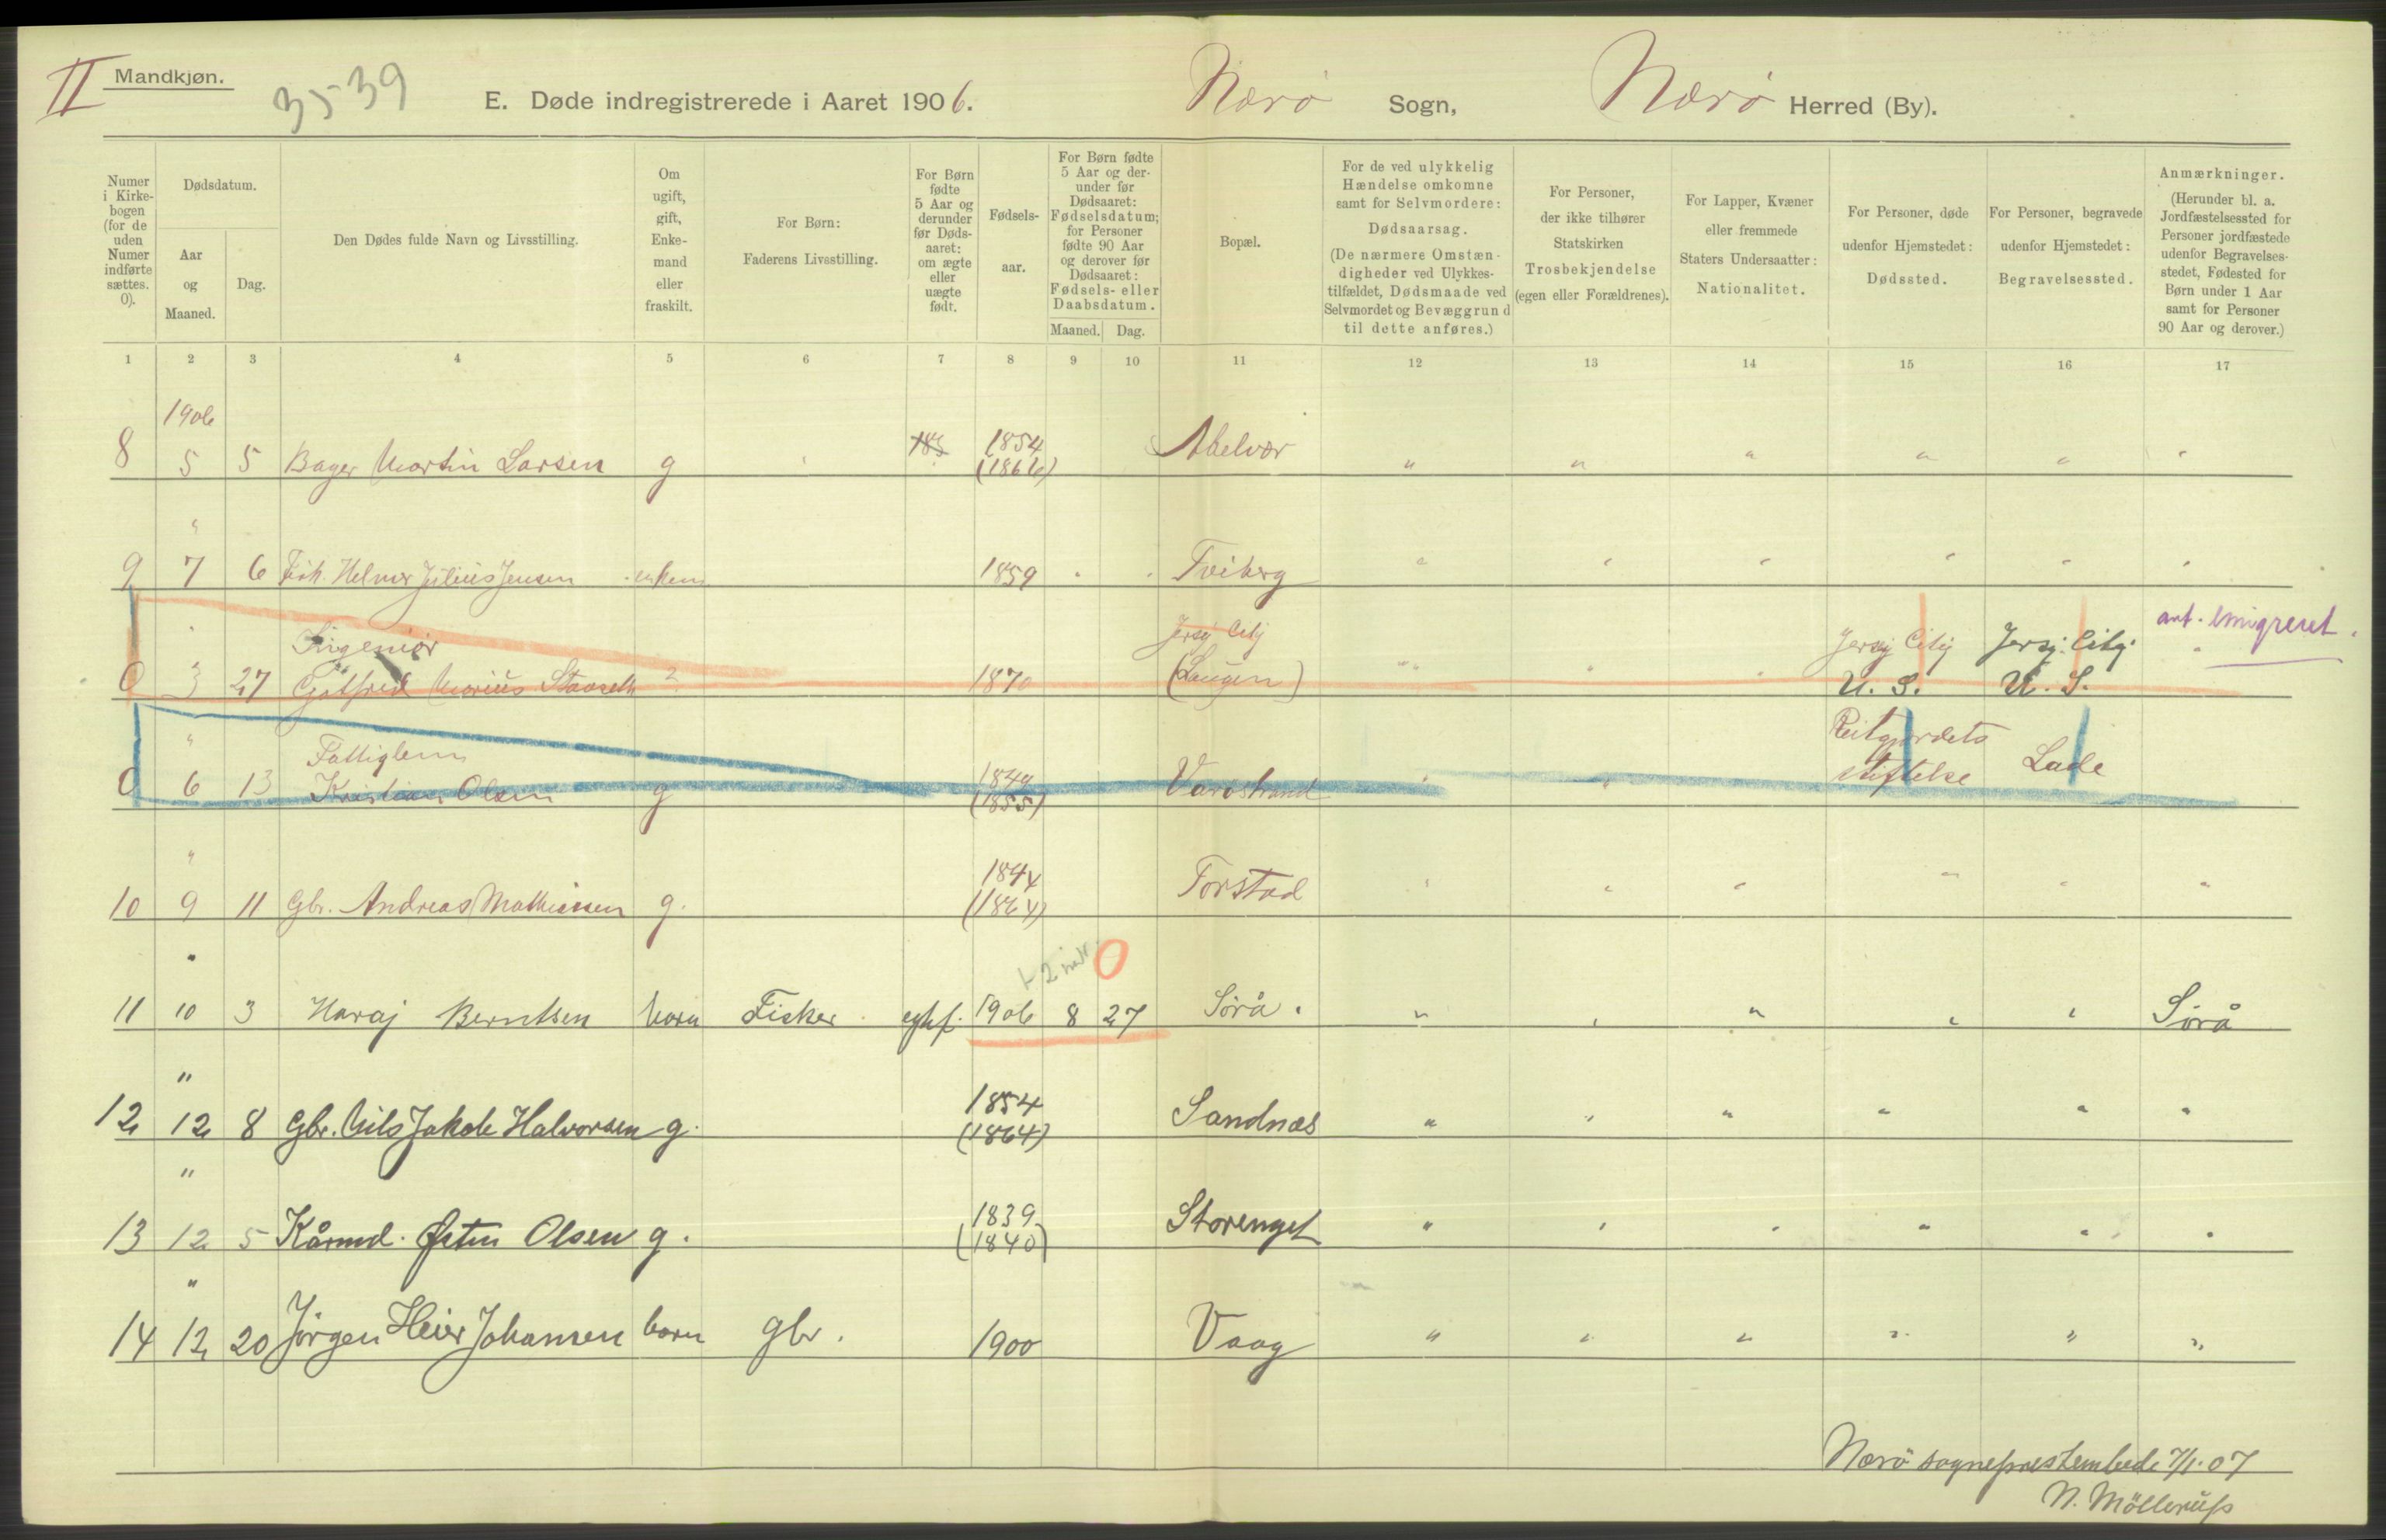 II
Mandkjøn.
3539
E. Døde indregistrerede i Aaret 1906.
Nærö Sogn,
Nærö Herred (By).
Numer i Kirkebogen (for de uden Numer indførte sættes. 0).
Dødsdatum.
Aar og Maaned.
Dag.
Den Dødes fulde Navn og Livsstilling.
Om ugift, gift, Enkemand eller fraskilt.
For Børn:
Faderens Livsstilling.
For Børn fødte 5 Aar og derunder før Dødsaaret: om ægte eller uægte født.
Fødselsaar.
For Børn fødte 5 Aar og derunder før Dødsaaret: Fødselsdatum; for Personer fødte 90 Aar og derover før Dødsaaret: Fødsels- eller Daabsdatum.
Maaned. Dag.
Bopæl.
For de ved ulykkelig Hændelse omkomne samt for Selvmordere:
Dødsaarsag.
(De nærmere Omstændigheder ved Ulykkestilfældet, Dødsmaade ved Selvmordet og Bevæggrund til dette anføres.)
For Personer, der ikke tilhører Statskirken
Trosbekjendelse
(egen eller Forældrenes).
For Lapper, Kvæner eller fremmede Staters Undersaatter:
Nationalitet.
For Personer, døde udenfor Hjemstedet:
Dødssted.
For Personer, begravede udenfor Hjemstedet:
Begravelsessted.
Anmærkninger.
(Herunder bl. a. Jordfæstelsessted for Personer jordfæstede udenfor Begravelsesstedet, Fødested for Børn under 1 Aar samt for Personer 90 Aar og derover.)
1 2 3 4 5 6 7 8 9 10 11 12 13 14 15 16 17
1906
8 5 5 Bager Martin Larsen g 185 1854 (1866) Abelvær " " " " " "
"
9 7 6 Helmer Julius Jensen enkem 1859 Tviberg " " " " " "
"
Ingeniør Jersej Citij Jersej Citij Jersej. Citij. ant. emigreret.
0 3 27 Gotfred Marius 2 1870 (Laugen) " " " U. S. U. S. "
"
Fattiglem Reitgjerdets
0 6 13 Kristian Olsen g 1849 (1855) Værøstrand " " stiftelse Lade
"
10 9 11 Gbr. Andreas Mathissen g. 1844 (1864) Torstad " " " " " "
"
÷ 2 mdr. 0
11 10 3 Berntsen barn Fisker egtef. 1906 8 27 Sörå. " " " " " Sörå
"
12 12 8 Gbr. Nils Jakob Halvorsen g. 1854 (1864) Sandnæs " " " " " "
"
13 12 5 Kårmd. Östen Olsen g. 1839 (1840) Storenget " " " " " "
"
14 12 20 Jörgen Heier Johansen barn gbr. 1900 Vaag " " " " " "
Nærö sogneprestembede 7/1-07
N. Möllerup